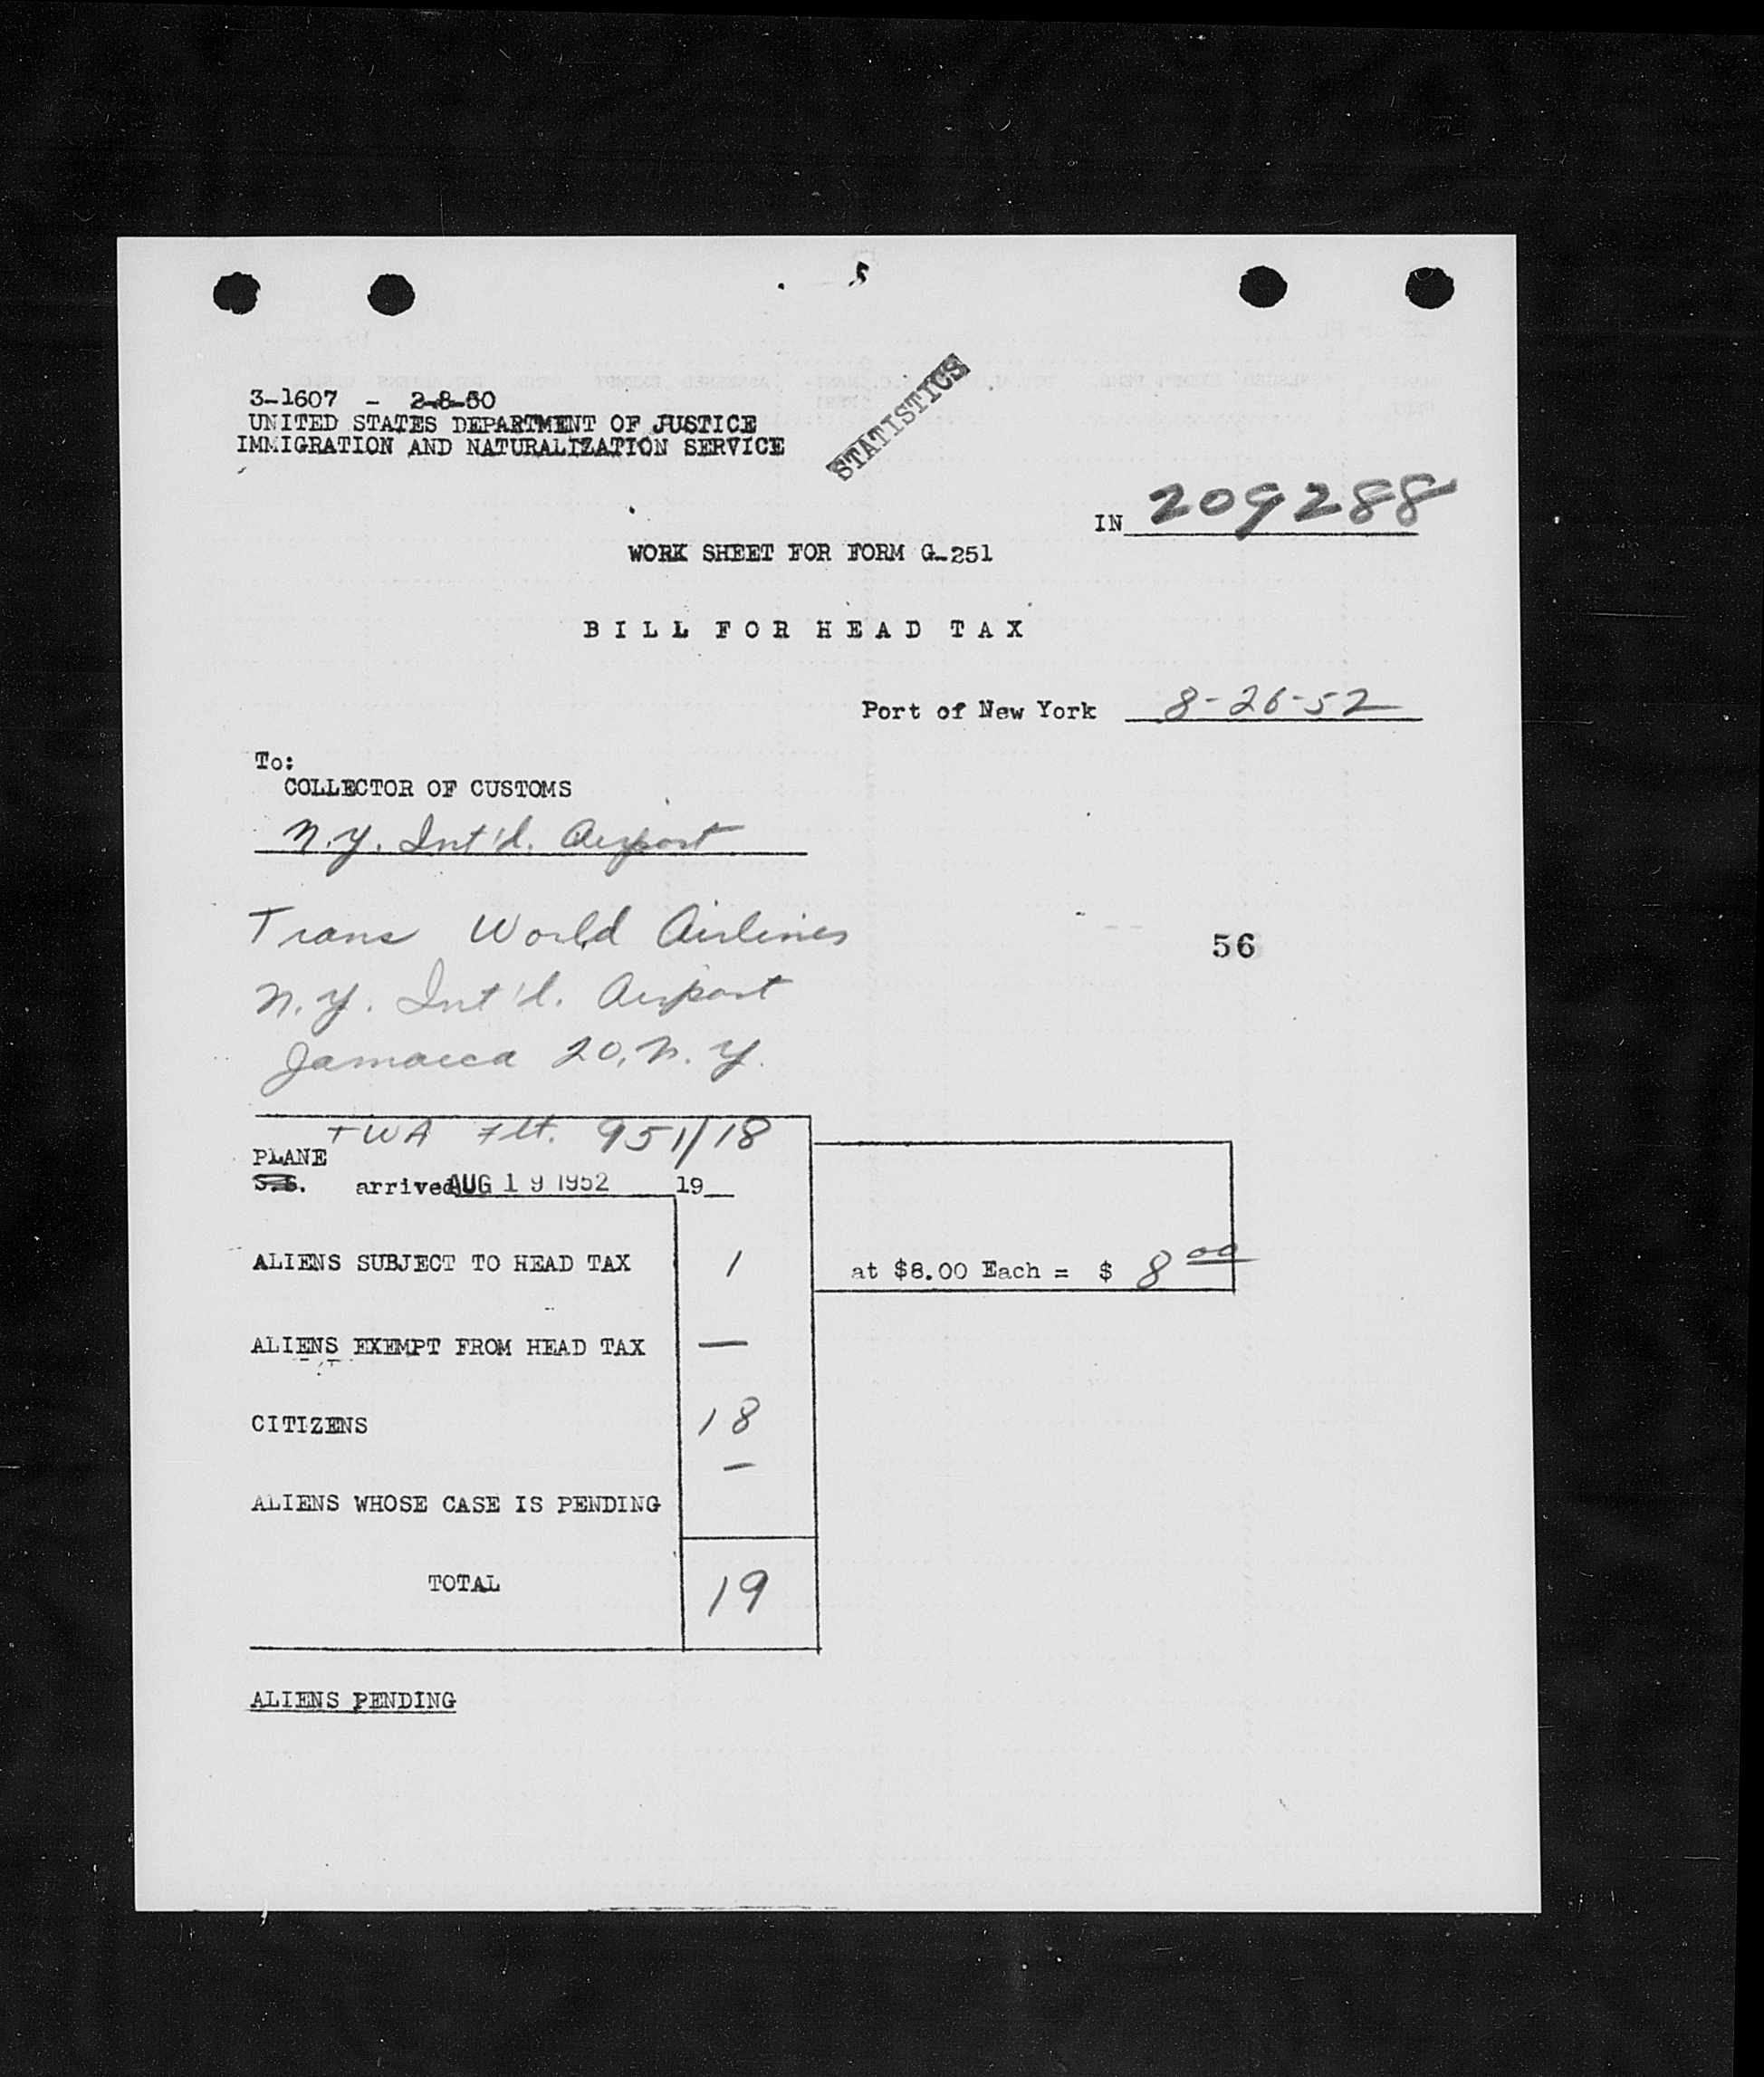 3-1607 - 2-8-50
UNITED STATES DEPARTMENT OF JUSTICE
IMMIGRATION AND NATURALIZATION SERVICE
STATISTICS
IN 209288
WORK SHEET FOR FORM G-251
BILL FOR HEAD TAX
Port of New York 8-26-52
To:
COLLECTOR OF CUSTOMS
N.Y. Int'l. Airport
Trans World Airlines
56
N.Y. Int'l. Airport
Jamaica 20, N.Y.
TWA Flt. 951/18
PLANE
S.S. arrived AUG 19 1952 19
ALIENS SUBJECT TO HEAD TAX 1 at $8.00 Each = $ 8 00
ALIENS EXEMPT FROM HEAD TAX —
CITIZENS 18
—
ALIENS WHOSE CASE IS PENDING
TOTAL 19
ALIENS PENDING